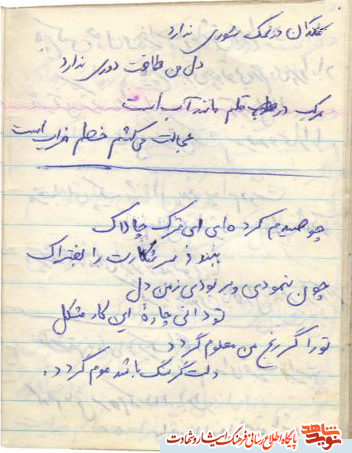 نمکدان درنمک شوری ندارد
دل من طاقت دوری ندارد
مرکب در قلم مانند آب است
خجالت می‌کشم خطم خراب است
چو صیدم کرده‌ای ای ترک چالاک
ببند و سر شکارت را بفتراک
چون بنمودی و ربودی زمن دل
تو دانی چارهٔ این کار مشکل
تو را گر رنج من معلوم گردد
دلت گر سنگ باشد موم گردد.
نوید شاهد
پایگاه اطلاع رسانی فرهنگ ایثار و شهادت